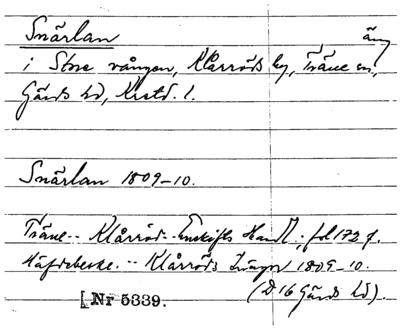 Snärlan äng
i Stora vången, Klårröds by, Träne sn,
Gärds hd, Krstd. l.
Snärlan 1809-10.
Träne-- Klårröd-- Enskifts Handl., fol 172 f.
Häfdebeskr.-- Klårröds Ängar 1809-10.
(D16 Gärds hd).
[Nr 5339.